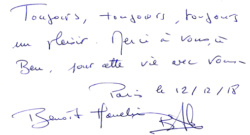 Toujours, toujours, toujours
un plaisir. Merci à vous, à
Ben, pour cette vie avec vous.
Paris le 12/12/18
Benoît